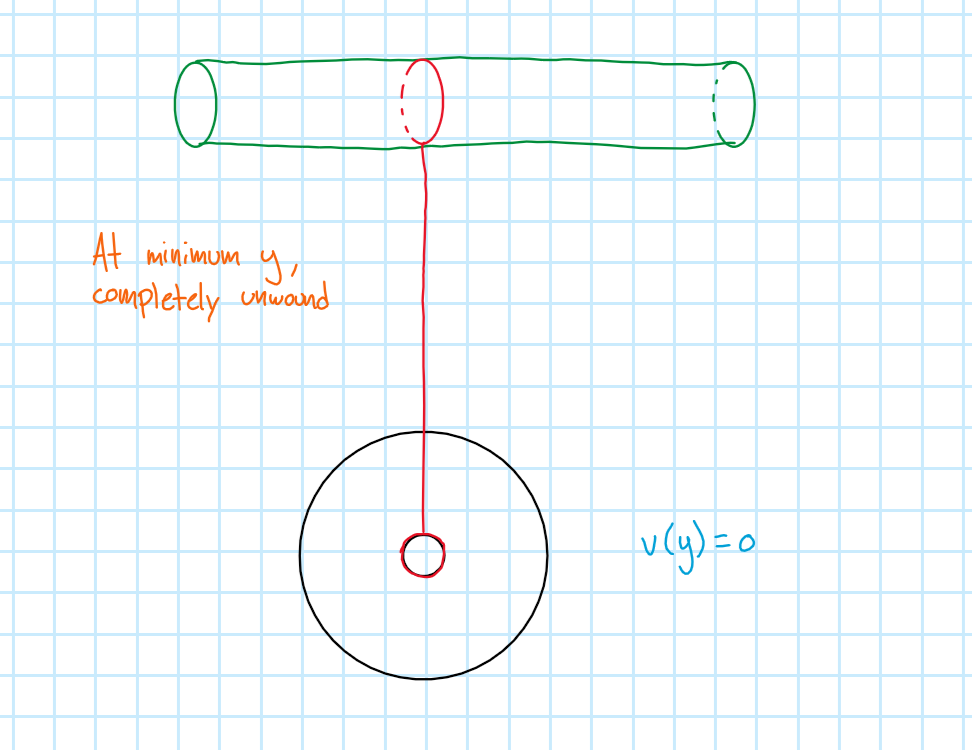 At minimum y,
completely unwound
v(y)=0